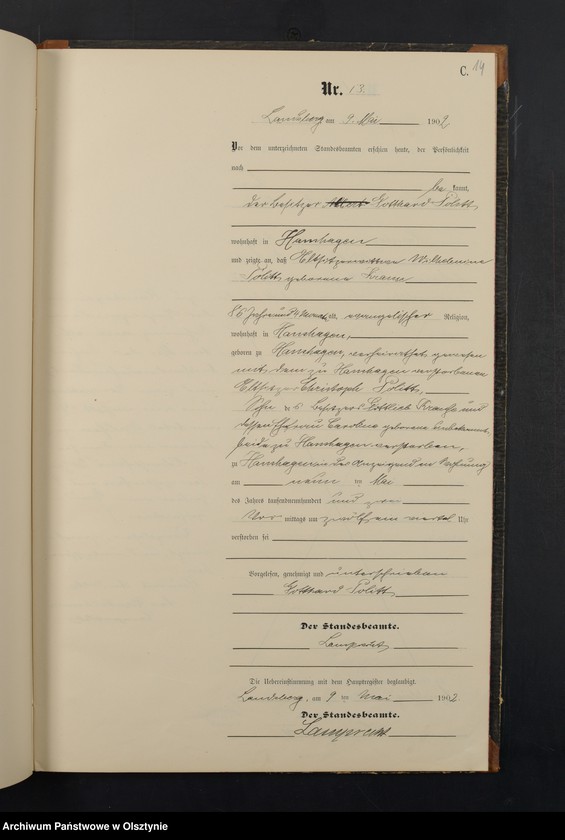 C. 14
Nr. 13
Landsberg am 9. Mai 1902
Vor dem unterzeichneten Standesbeamten erschien heute, der Persönlichkeit
nach
be kannt,
der Besitzer Gotthard Politt,
wohnhaft in Hanshagen
und zeigte an, daß Altsitzerwittwe Wilhelmine
Politt geborene Krause
86 Jahre und Monate alt, evangelischer Religion,
wohnhaft in Hanshagen,
geboren zu Hanshagen, verheirathet gewesen
mit dem zu Hanshagen verstorbenen
Altsitzer Christoph Politt,
Sohn des Besitzers Gottlieb Krause und
dessen Ehefrau Caroline geborene unbekannt,
beide zu Hanshagen verstorben,
zu Hanshagen in des Anzeigenden Wohnung
am neun ten Mai
des Jahres tausendneunhundert und zwei
Vor mittags um zwölf ein viertel Uhr
verstorben sei
Vorgelesen, genehmigt und unterschrieben
Gotthard Politt
Der Standesbeamte.
Lamprecht
Die Uebereinstimmung mit dem Hauptregister beglaubigt.
Landsberg, am 9 ten Mai 1902
Der Standesbeamte.
Lamprecht
Archiwum Państwowe w Olsztynie